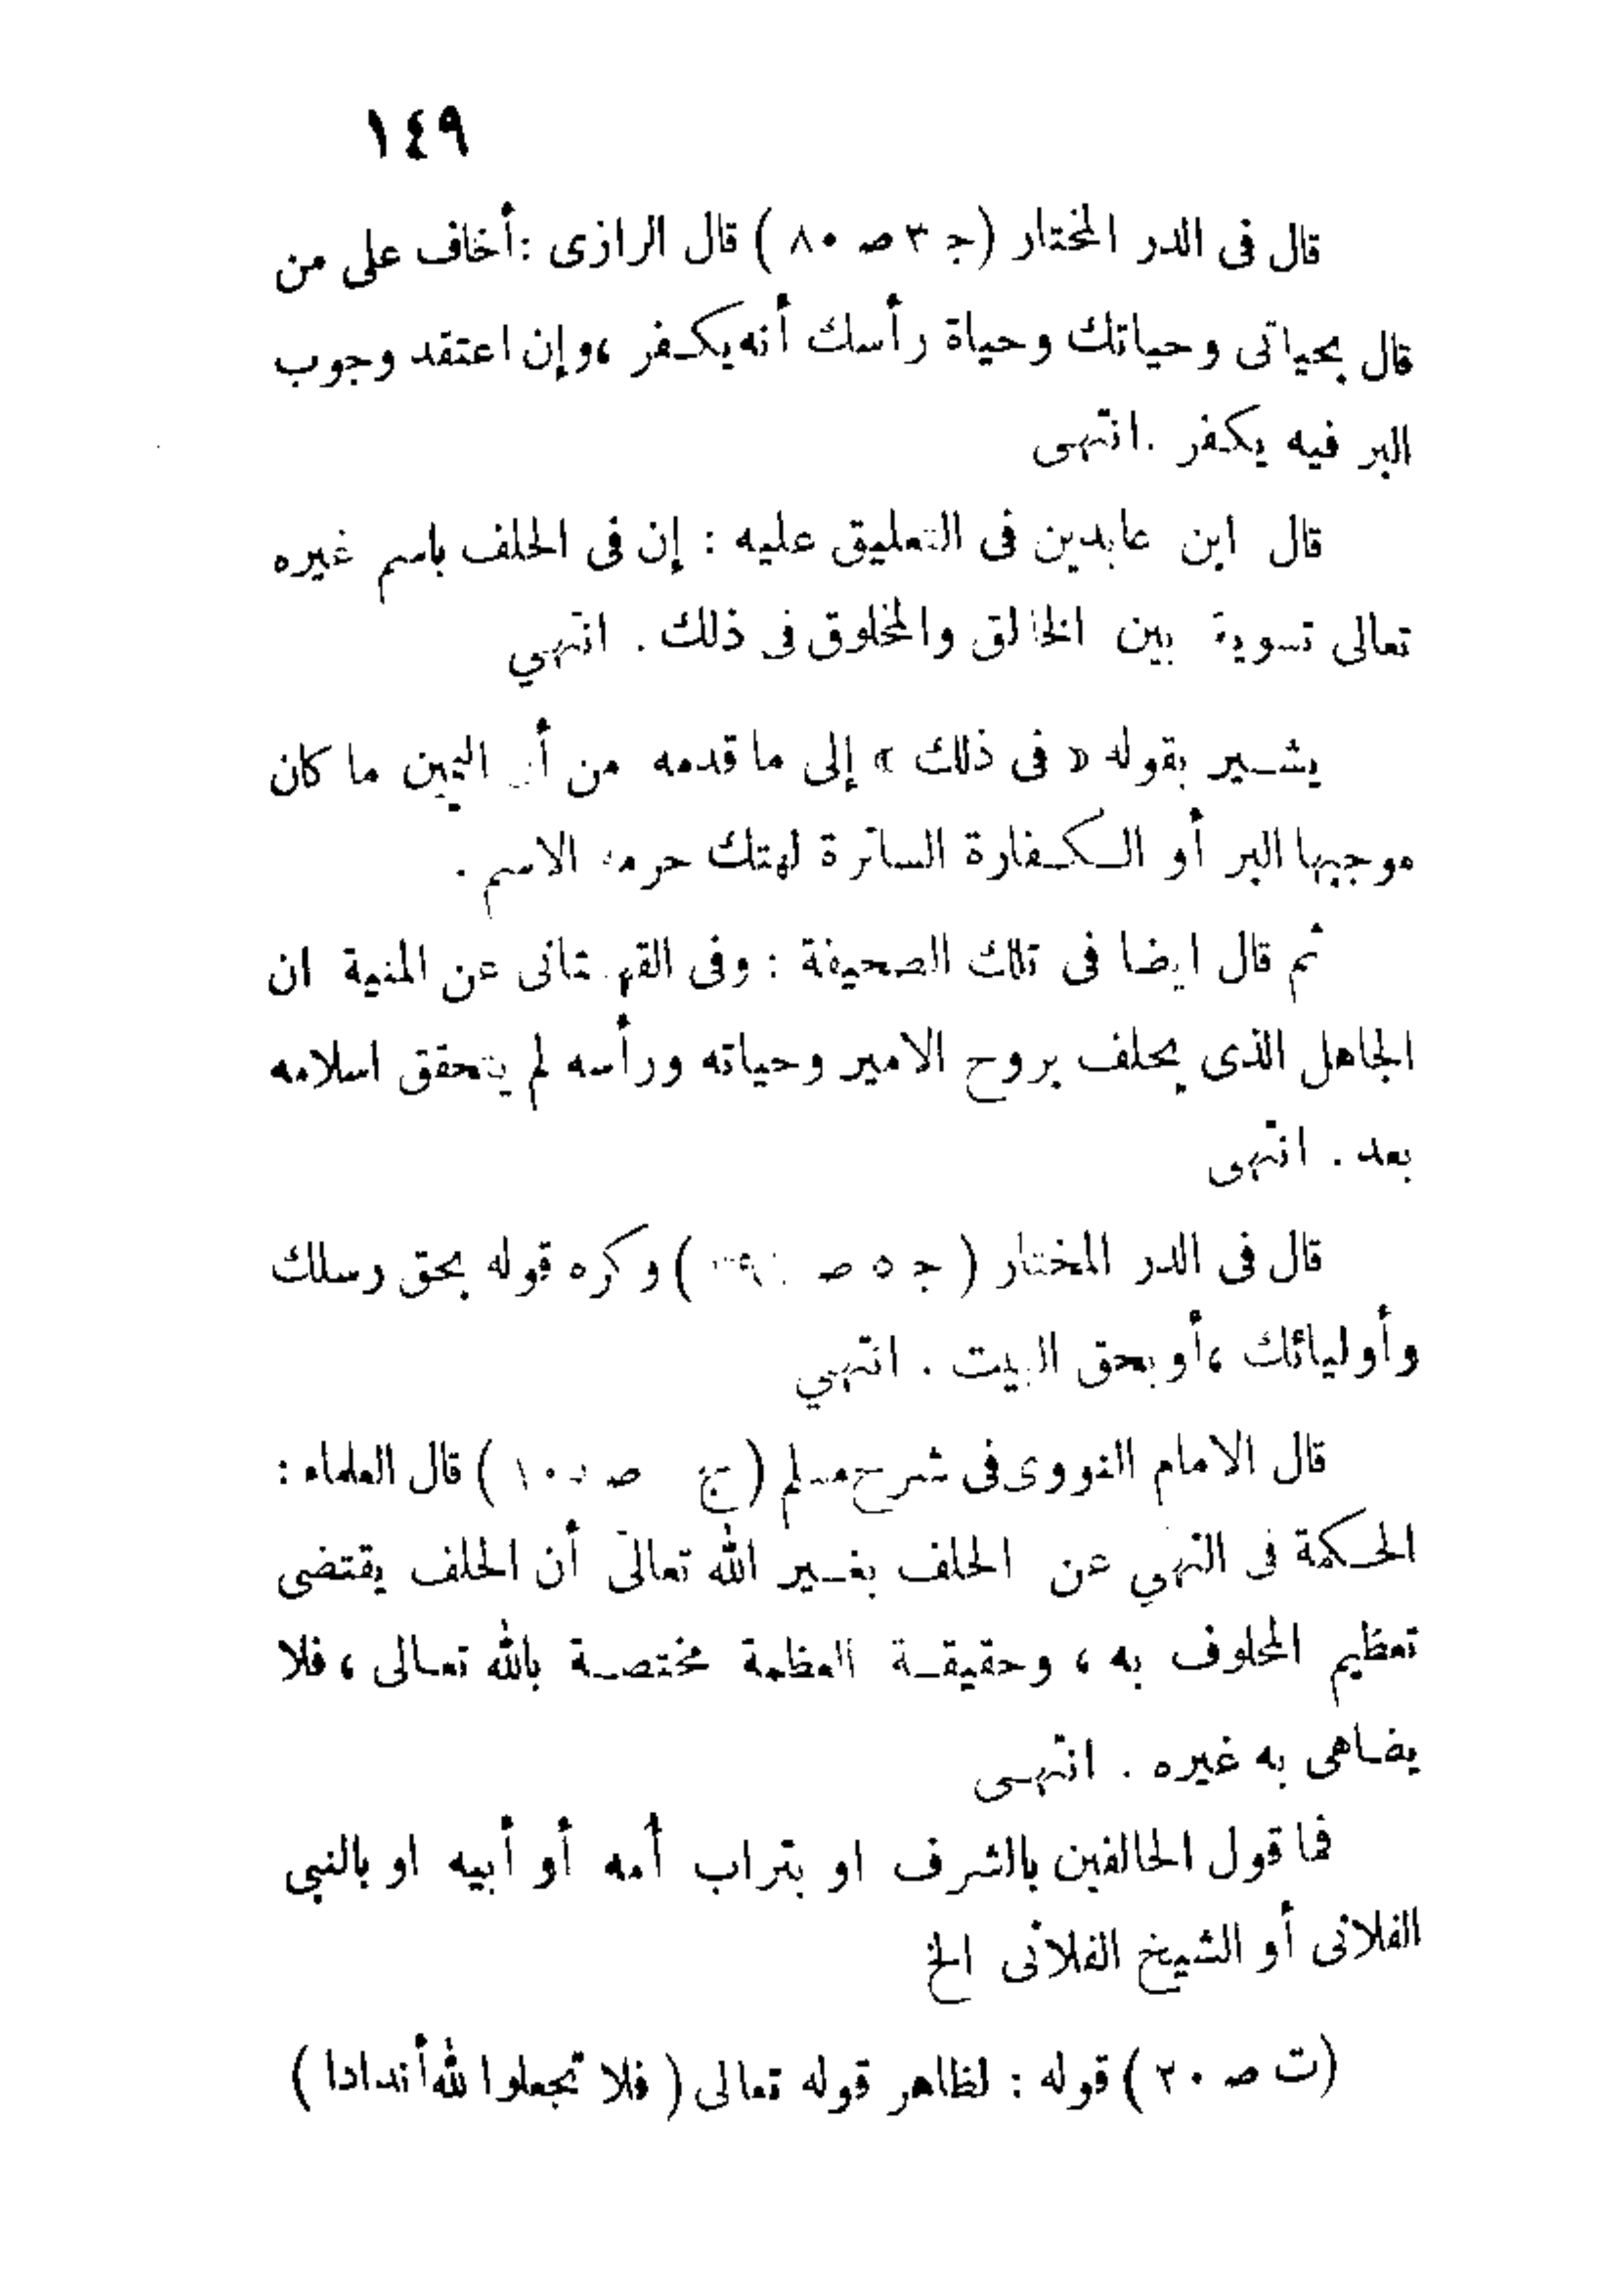 ١٤٩
قال فى الدر المختار (ج ٣ ص ٨٠) قال الرازى : أخاف على من
قال بحياتى وحياتك وحياة رأسك أنه يكفر ، وإن اعتقد وجوب
البر فيه يكفر . انتهى
قال ابن عابدين فى التعليق عليه : إن فى الحلف باسم غيره
تعالى تسوية بين الخالق والمخلوق فى ذلك . انتهي
يشير بقوله « فى ذلك » إلى ما قدمه من أن اليمين ما كان
موجبها البر أو الكفارة الساترة لهتك حرمة الاسم .
ثم قال ايضا فى تلك الصحيفة : وفى القهستانى عن المنية ان
الجاهل الذى يحلف بروح الامير وحياته ورأسه لم يتحقق اسلامه
بعد . انتهى
قال فى الدر المختار ( ج ٥ ص ) وكره قوله بحق رسلك
وأوليائك ، أو بحق البيت . انتهي
قال الامام النووى فى شرح مسلم (ج ص ) قال العلماء :
الحكمة فى النهي عن الحلف بغير الله تعالى أن الحلف يقتضى
تعظيم المحلوف به ، وحقيقة العظمة مختصة بالله تعالى ، فلا
يضاهى به غيره . انتهى
فما قول الحالفين بالشرف او بتراب أمه أو أبيه او بالنبي
الفلانى أو الشيخ الفلانى الخ
(ت ص ٢٠) قوله : لظاهر قوله تعالى ( فلا تجعلوا لله أندادا )